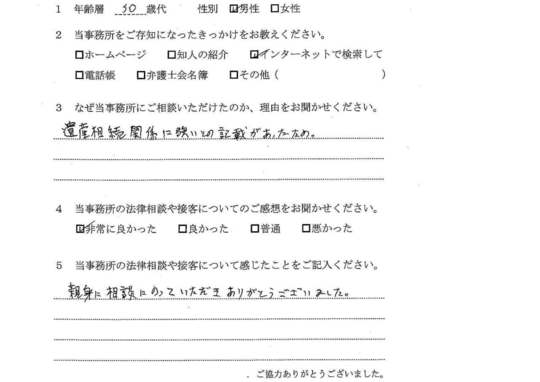 1 年齢層 30 歳代 性別 ☑男性 □女性
2 当事務所をご存知になったきっかけをお教えください。
□ホームページ □知人の紹介 ☑インターネットで検索して
□電話帳 □弁護士会名簿 □その他（ ）
3 なぜ当事務所にご相談いただけたのか、理由をお聞かせください。
遺産相続関係に強いとの記載があったため。
4 当事務所の法律相談や接客についてのご感想をお聞かせください。
☑非常に良かった □良かった □普通 □悪かった
5 当事務所の法律相談や接客について感じたことをご記入ください。
親身に相談にのっていただきありがとうございました。
．ご協力ありがとうございました。